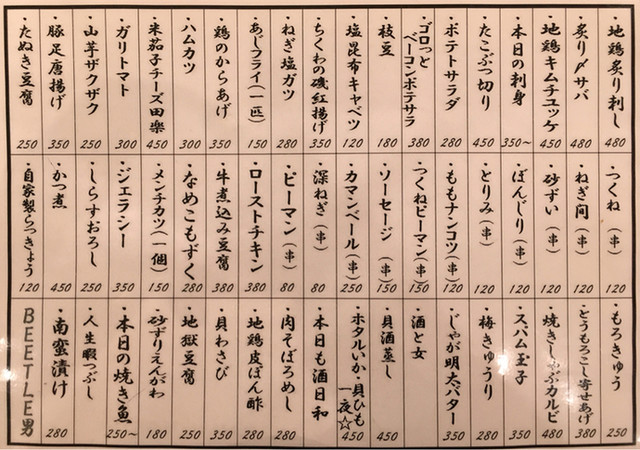 ・地鶏炙り刺し 480
・炙り〆サバ 480
・地鶏キムチユッケ 450
・本日の刺身 350~
・たこぶつ切り 450
・ポテトサラダ 280
・ゴロっと
ベーコンポテサラ 380
・枝豆 180
・塩昆布キャベツ 120
・ちくわの磯紅揚げ 350
・ねぎ塩ガツ 280
・あじフライ(一匹) 150
・鶏のからあげ 350
・ハムカツ 300
・米茄子チーズ田楽 450
・ガリトマト 300
・山芋ザクザク 250
・豚足唐揚げ 350
・たぬき豆腐 250
・つくね(串) 120
・ねぎ間(串) 120
・砂ずい(串) 120
・ぼんじり(串) 120
・とりみ(串) 120
・ももナンコツ(串) 120
・つくねピーマン(串) 150
・ソーセージ(串) 150
・カマンベール(串) 250
・深ねぎ(串) 80
・ピーマン(串) 80
・ローストチキン 380
・牛煮込み豆腐 380
・なめこもずく 280
・メンチカツ(一個) 150
・ジェラシー 350
・しらすおろし 250
・かつ煮 450
・自家製らっきょう 120
・もろきゅう 250
・とうもろこし寄せあげ 380
・焼きしゃぶカルビ 480
・スパム玉子 350
・梅きゅうり 280
・じゃが明太バター 350
・酒と女
・貝酒蒸し 450
・ホタルいか・貝ひも
一夜☆ 450
・本日も酒日和
・肉そぼろめし 280
・地鶏皮ぽん酢 280
・貝わさび 350
・地獄豆腐 250
・砂ずりえんがわ 180
・本日の焼き魚 250~
・人生暇つぶし
・南蛮漬け 280
BEETLE男